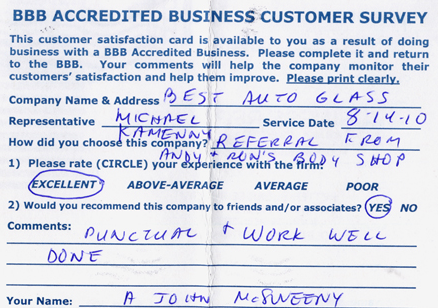 BBB ACCREDITED BUSINESS CUSTOMER SURVEY
This customer satisfaction card is available to you as a result of doing
business with a BBB Accredited Business. Please complete it and return
to the BBB. Your comments will help the company monitor their
customers' satisfaction and help them improve. Please print clearly.
Company Name & Address BEST AUTO GLASS
Representative MICHAEL KAMENNY Service Date 8-14-10
How did you choose this company? REFERRAL FROM
ANDY + RON'S BODY SHOP
1) Please rate (CIRCLE) your experience with the firm?
EXCELLENT ABOVE-AVERAGE AVERAGE POOR
2) Would you recommend this company to friends and/or associates? YES NO
Comments: PUNCTUAL + WORK WELL
DONE
Your Name: A JOHN McSWEENY